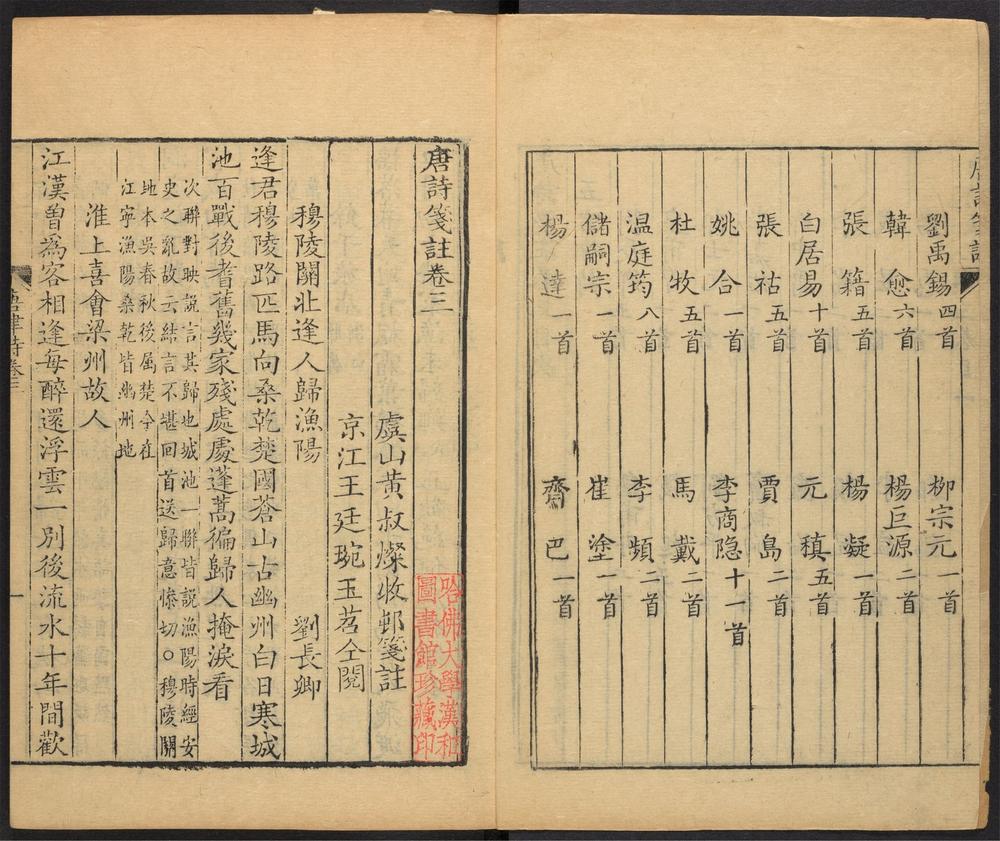 唐詩箋註
劉禹錫四首 柳宗元一首
韓愈六首 楊巨源二首
張籍五首 楊凝一首
白居易十首 元稹五首
張祜五首 賈島二首
姚合一首 李商隐十一首
杜牧五首 馬戴二首
温庭筠八首 李頻二首
儲嗣宗一首 崔塗一首
楊達一首 齋巴一首
唐詩箋註卷三
虞山黄叔燦牧邨箋註
京江王廷琬玉茗仝閱
哈佛大學漢和
圖書館珍藏印
穆陵關北逢人歸漁陽 劉長卿
逢君穆陵路匹馬向桑乾楚國蒼山古幽州白日寒城
池百戰後耆舊幾家殘處處蓬蒿徧歸人掩淚看
次聯對映說言其歸也城池一聯皆說漁陽時經安
史之亂故云結言不堪回首送歸意悽切○穆陵關
地本吳春秋後屬楚今在
江寧漁陽桑乾皆幽州地
淮上喜會梁州故人
江漢曾爲客相逢每醉還浮雲一別後流水十年間歡
五律詩卷三
一